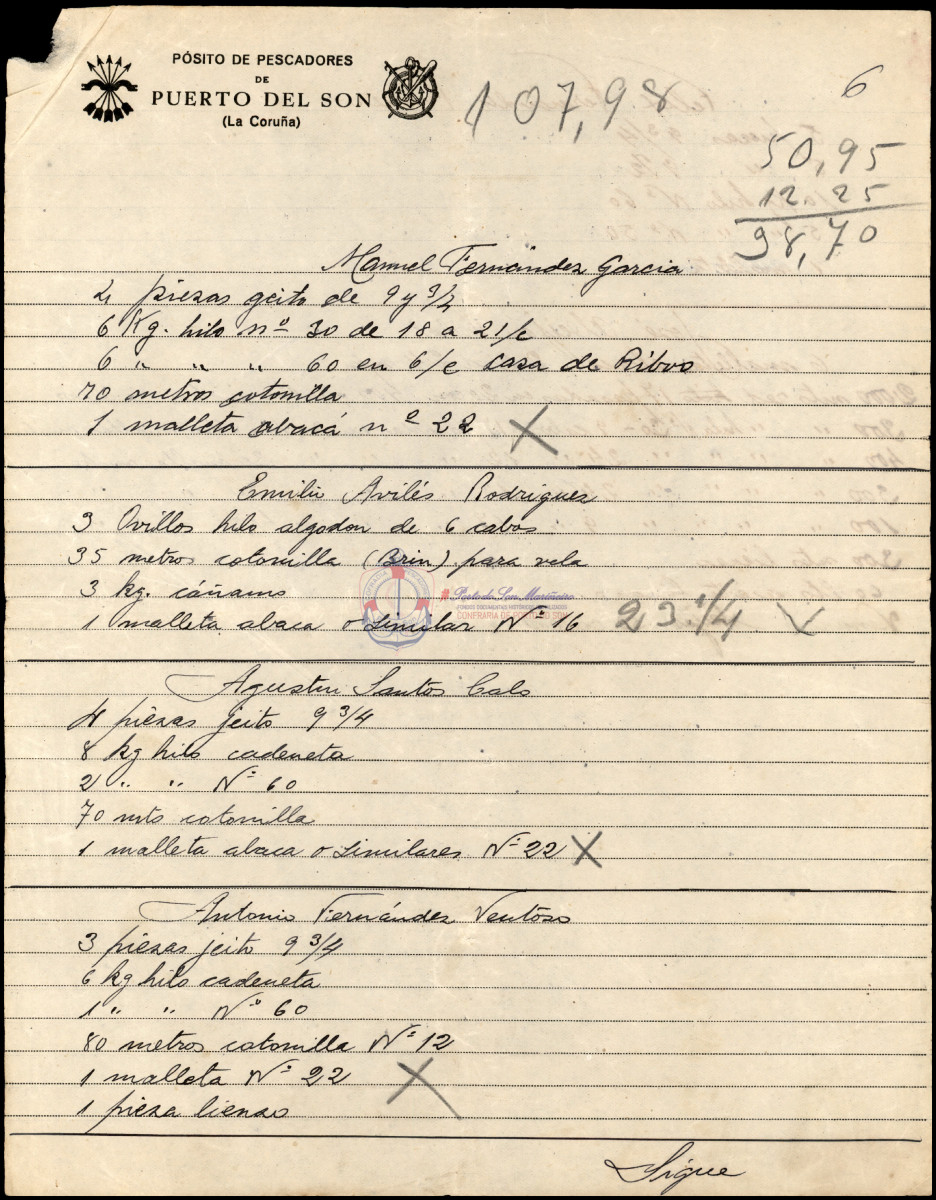 PÓSITO DE PESCADORES
DE
PUERTO DEL SON
(La Coruña)
107,98
6
50,95
12.25
98,70
Manuel Fernández Garcia
2 piezas geito de 9 y 3/4
6 Kg. hilo nº 30 de 18 a 21/c
6 " " " 60 en 6/c casa de Ribos
70 metros cotonilla
1 malleta abacá nº 22 X
Emilio Avilés Rodriguez
3 Ovillos hilo algodon de 6 cabos
35 metros cotonilla (Brin) para vela
3 kg. cáñamo
1 malleta abaca o similar Nº 16 23 1/4
# Porto do Son Mariñeiro
CONFRARIA DE PORTO DO SON
Agustin Santos Calo
4 piezas jeito 9 3/4
8 kg hilo cadeneta
2 " " Nº 60
70 mts cotonilla
1 malleta abaca o similares Nº 22 X
Antonio Fernández Ventoso
3 piezas jeito 9 3/4
6 kg hilo cadeneta
1 " " Nº 60
80 metros cotonilla Nº 12
1 malleta Nº 22 X
1 pieza lienzo
Sigue